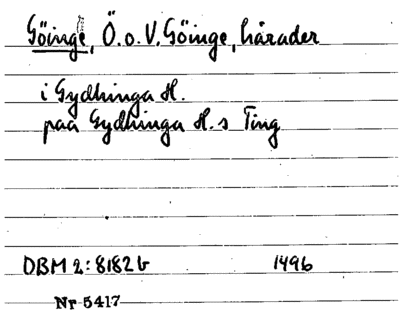 Göinge, Ö. o. V. Göinge, härader
i Gydhinga H.
paa Gydhinga H.s Ting
DBM 2: 8182 b 1496
Nr 5417